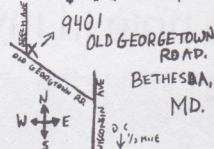 9401
OLD GEORGETOWN
ROAD.
BETHESDA,
MD.
OLD GEORGETOWN RD.
N
W E
S
WISCONSIN AVE
D.C.
1/2 MILE